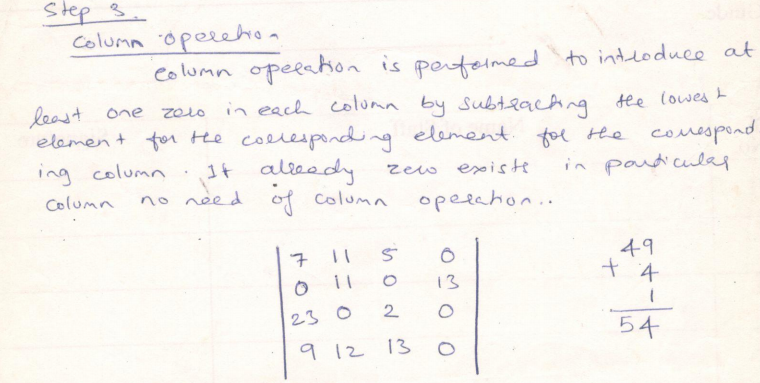 Step 3.
Column operation
Column operation is performed to introduce at
least one zero in each column by subtracting the lowest
element for the corresponding element for the correspond
ing column. If already zero exists in particular
column no need of column operation..
7 11 5 0
0 11 0 13
23 0 2 0
9 12 13 0
49
+ 4
1
54